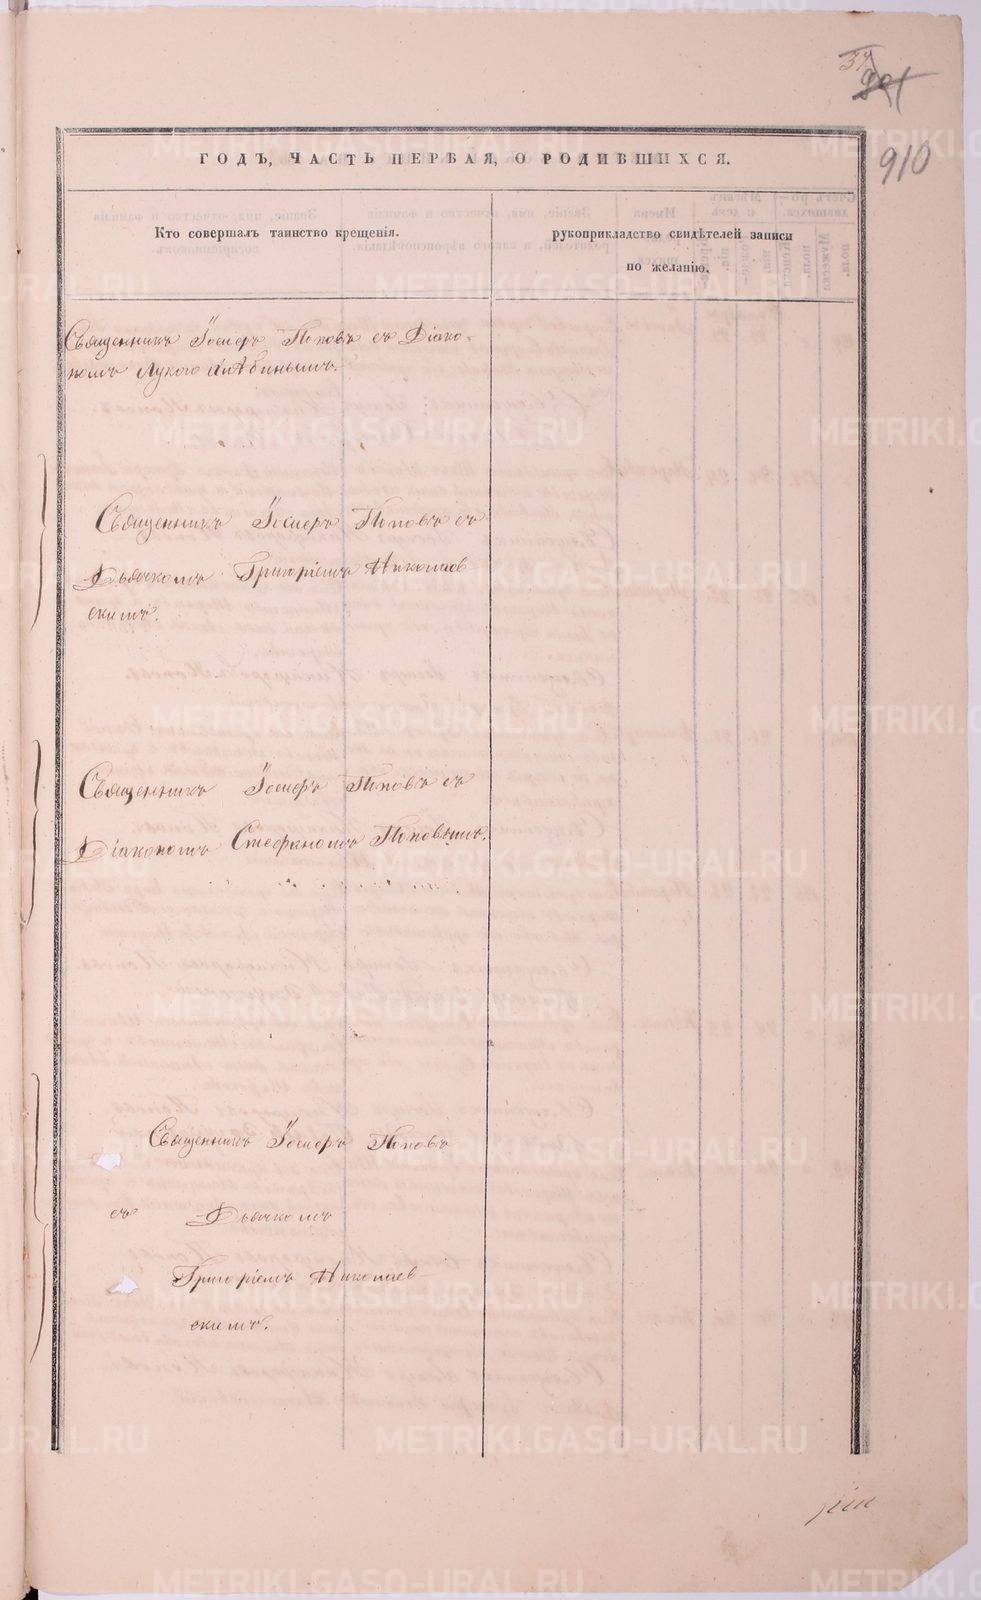 910
ГОДЪ, ЧАСТЬ ПЕРВАЯ, О РОДИВШИХСЯ.
Кто совершалъ таинство крещенія.
рукоприкладство свидѣтелей записи
по желанію.
Священникъ Іосифъ Поповъ съ Діако-
номъ Лукою
Священникъ Іосифъ Поповъ съ
Дьячкомъ Григоріемъ Николаев
скимъ.
Священникъ Іосифъ Поповъ съ
Діакономъ Стефаномъ Поповымъ.
Священникъ Іосифъ Поповъ
съ Дьячкомъ
Григоріемъ Николаев
скимъ.
METRIKI.GASO-URAL.RU